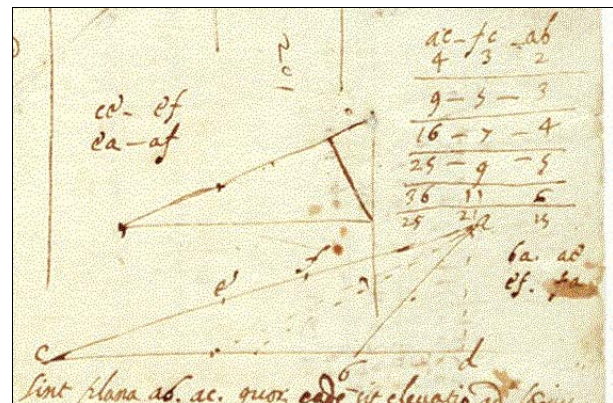 ac – fc – ab
4 3 2
9 – 5 – 3
16 – 7 – 4
25 – 9 – 5
36 11 6
25 21 15
ce – ef
ea – af
a
ba. ac
ef. fa
f
e
c
b
d
Sint plana ab. ac. quor. eadē sit elevatio ad